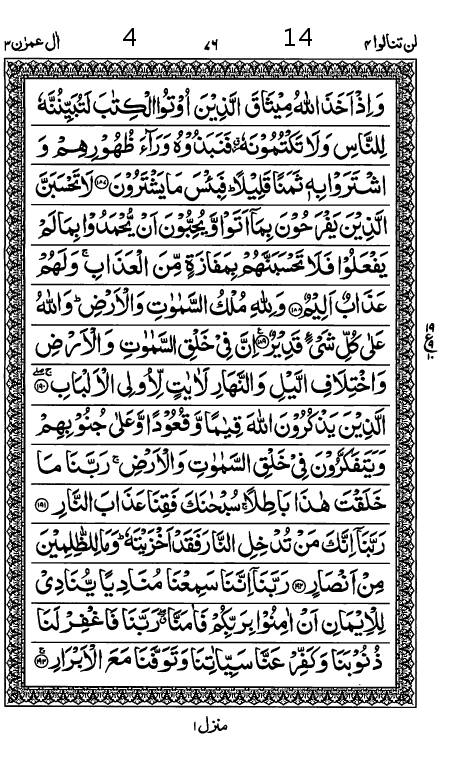 لن تنالوا ۴ 14 ۷۶ 4 اٰل عمرٰن ۳
وَ اِذۡ اَخَذَ اللّٰهُ مِيۡثَاقَ الَّذِيۡنَ اُوۡتُوا الۡكِتٰبَ لَتُبَيِّنُنَّهٗ
لِلنَّاسِ وَلَا تَكۡتُمُوۡنَهٗ فَنَبَذُوۡهُ وَرَآءَ ظُهُوۡرِهِمۡ وَ
اشۡتَرَوۡا بِهٖ ثَمَنًا قَلِيۡلًا ؕ فَبِئۡسَ مَا يَشۡتَرُوۡنَ ﴿۱۸۷﴾ لَا تَحۡسَبَنَّ
الَّذِيۡنَ يَفۡرَحُوۡنَ بِمَاۤ اَتَوۡا وَّيُحِبُّوۡنَ اَنۡ يُّحۡمَدُوۡا بِمَا لَمۡ
يَفۡعَلُوۡا فَلَا تَحۡسَبَنَّهُمۡ بِمَفَازَةٍ مِّنَ الۡعَذَابِ ۚ وَلَهُمۡ
عَذَابٌ اَلِيۡمٌ ﴿۱۸۸﴾ وَ لِلّٰهِ مُلۡكُ السَّمٰوٰتِ وَالۡاَرۡضِ ؕ وَاللّٰهُ
عَلٰى كُلِّ شَىۡءٍ قَدِيۡرٌ ﴿۱۸۹﴾ اِنَّ فِىۡ خَلۡقِ السَّمٰوٰتِ وَالۡاَرۡضِ
وَاخۡتِلَافِ الَّيۡلِ وَالنَّهَارِ لَاٰيٰتٍ لِّاُولِى الۡاَلۡبَابِ ﴿۱۹۰﴾
الَّذِيۡنَ يَذۡكُرُوۡنَ اللّٰهَ قِيٰمًا وَّقُعُوۡدًا وَّعَلٰى جُنُوۡبِهِمۡ
وَيَتَفَكَّرُوۡنَ فِىۡ خَلۡقِ السَّمٰوٰتِ وَالۡاَرۡضِ ۚ رَبَّنَا مَا
خَلَقۡتَ هٰذَا بَاطِلًا ۚ سُبۡحٰنَكَ فَقِنَا عَذَابَ النَّارِ ﴿۱۹۱﴾
رَبَّنَاۤ اِنَّكَ مَنۡ تُدۡخِلِ النَّارَ فَقَدۡ اَخۡزَيۡتَهٗ ؕ وَمَا لِلظّٰلِمِيۡنَ
مِنۡ اَنۡصَارٍ ﴿۱۹۲﴾ رَبَّنَاۤ اِنَّنَا سَمِعۡنَا مُنَادِيًا يُّنَادِىۡ
لِلۡاِيۡمَانِ اَنۡ اٰمِنُوۡا بِرَبِّكُمۡ فَاٰمَنَّا ۖ رَبَّنَا فَاغۡفِرۡ لَنَا
ذُنُوۡبَنَا وَكَفِّرۡ عَنَّا سَيِّاٰتِنَا وَتَوَفَّنَا مَعَ الۡاَبۡرَارِ ﴿۱۹۳﴾
منزل ۱